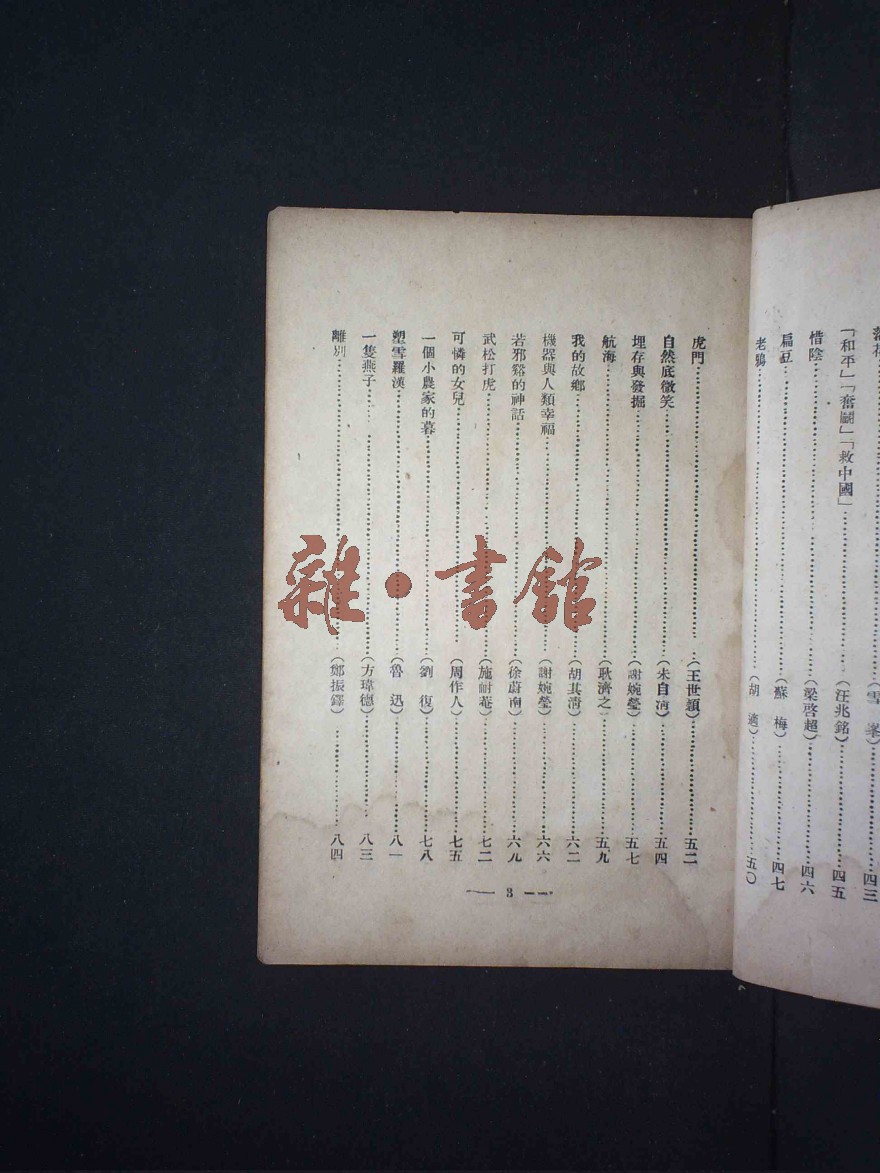 「和平」「奮鬭」「救中國」……(汪兆銘)……四五
惜陰……(梁啓超)……四六
扁豆……(蘇梅)……四七
老鴉……(胡適)……五〇
虎門……(王世頴)……五二
自然底微笑……(朱自淸)……五四
埋存與發掘……(謝婉瑩)……五七
航海……(耿濟之)……五九
我的故鄉……(胡其淸)……六二
機器與人類幸福……(謝婉瑩)……六六
若邪谿的神話……(徐蔚南)……六九
武松打虎……(施耐菴)……七二
可憐的女兒……(周作人)……七五
一個小農家的暮……(劉復)……七八
塑雪羅漢……(魯迅)……八一
一隻燕子……(方瑋德)……八三
離別……(鄭振鐸)……八四
— 3 —
雜·書館